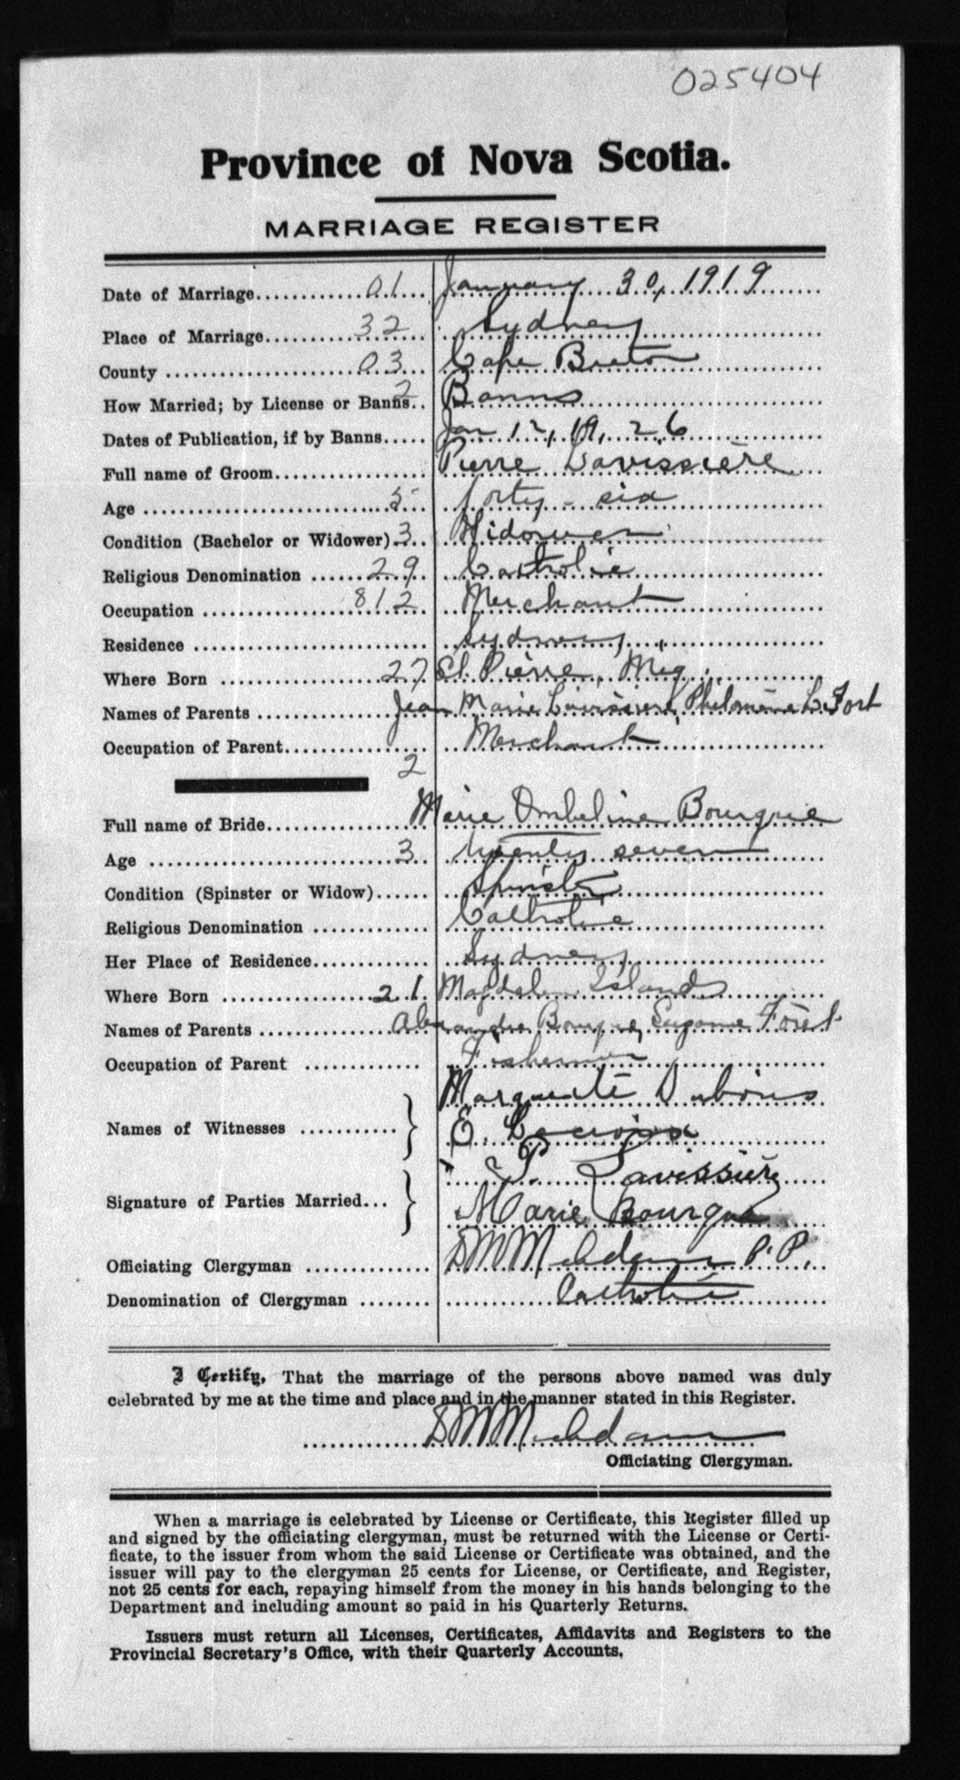 025404
Province of Nova Scotia.
MARRIAGE REGISTER
Date of Marriage............01... January 30, 1919
Place of Marriage.........32.... Sydney
County ....................03... Cape Breton
How Married; by License or Banns.. 2 Banns
Dates of Publication, if by Banns..... Jan 12, 19, 26
Full name of Groom................ Pierre Lavissière
Age ..........................5.. forty-six
Condition (Bachelor or Widower).3.. Widower
Religious Denomination ......29. Catholic
Occupation ................812.. Merchant
Residence ........................ Sydney
Where Born .................27 St. Pierre, Miq.
Names of Parents ............... Jean Marie Lavissière, Philomène LeFort
Occupation of Parent............... Merchant
2
Full name of Bride................ Marie Ombeline Bourque
Age .........................3.. twenty seven
Condition (Spinster or Widow)...... Spinster
Religious Denomination ............ Catholic
Her Place of Residence............. Sydney
Where Born ................21. Magdalen Islands
Names of Parents .............. Alexandre Bourque, Forest
Occupation of Parent ............ Fisherman
Names of Witnesses ........... } Marguerite Dubois
E.
Signature of Parties Married... } P. Lavissière
Marie Bourque
Officiating Clergyman ............. P.P.
Denomination of Clergyman ........ Catholic
I Certify, That the marriage of the persons above named was duly
celebrated by me at the time and place and in the manner stated in this Register.
Officiating Clergyman.
When a marriage is celebrated by License or Certificate, this Register filled up
and signed by the officiating clergyman, must be returned with the License or Certi-
ficate, to the issuer from whom the said License or Certificate was obtained, and the
issuer will pay to the clergyman 25 cents for License, or Certificate, and Register,
not 25 cents for each, repaying himself from the money in his hands belonging to the
Department and including amount so paid in his Quarterly Returns.
Issuers must return all Licenses, Certificates, Affidavits and Registers to the
Provincial Secretary's Office, with their Quarterly Accounts.